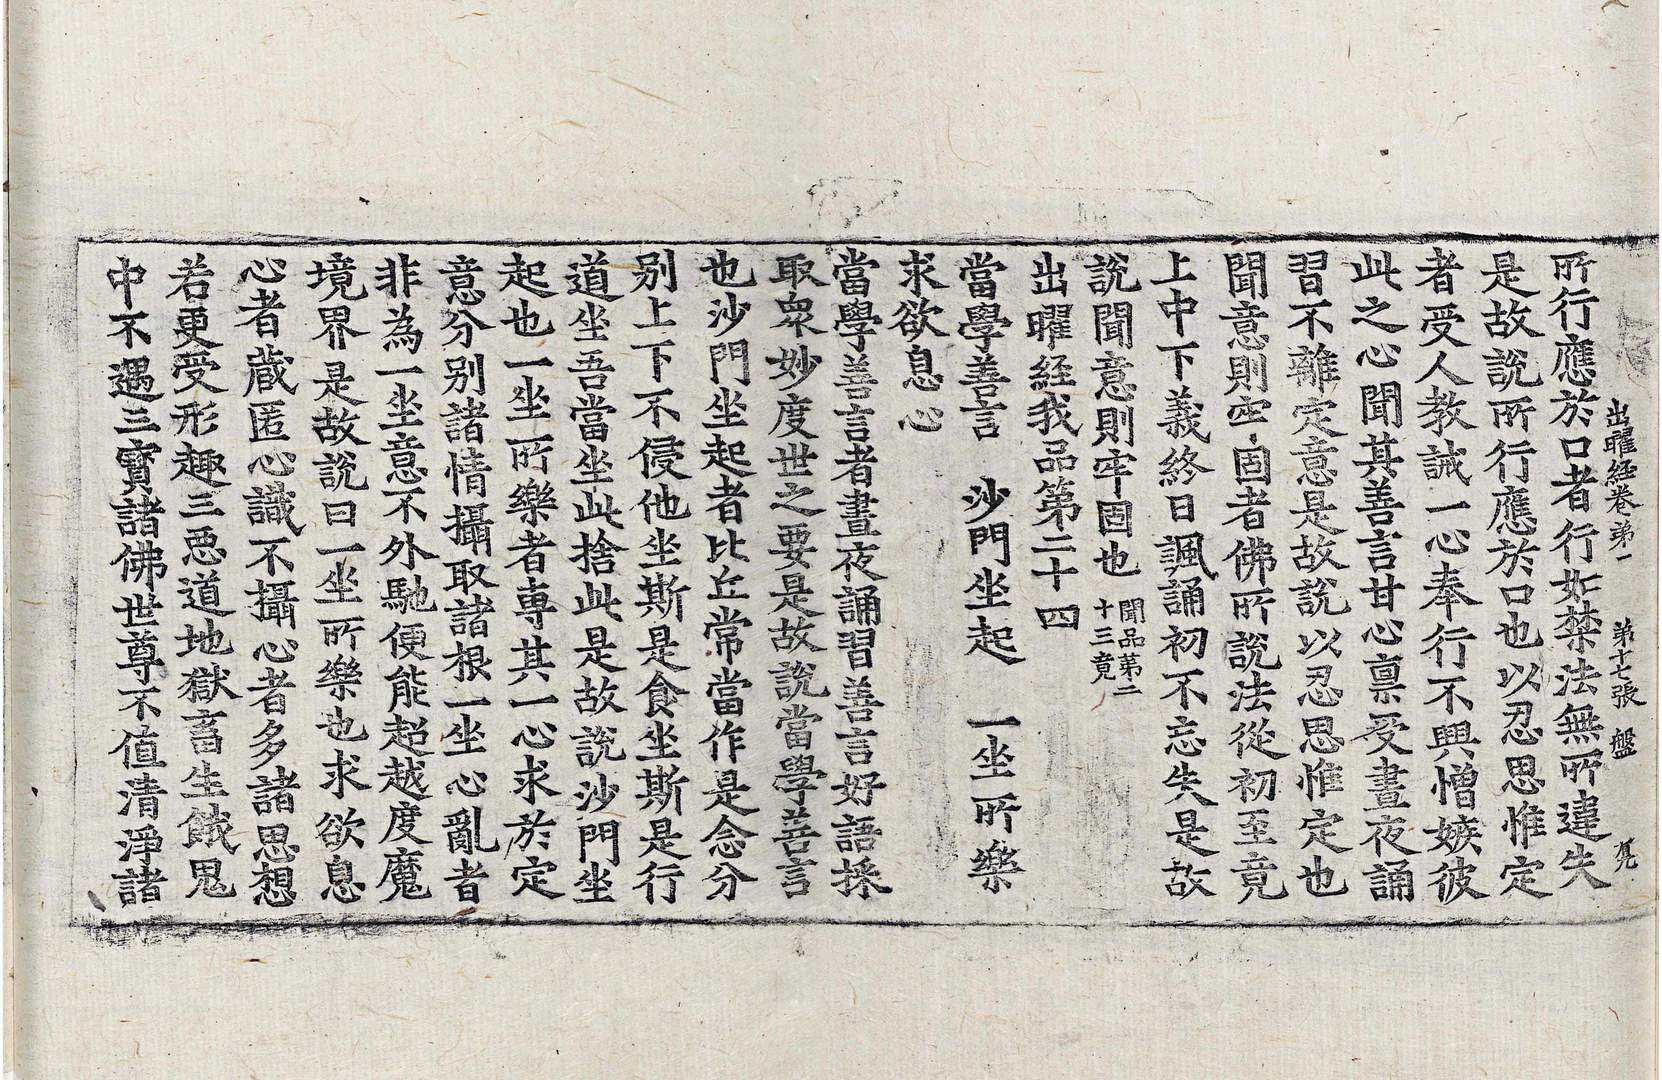 出曜經卷第一　第十七張　盤
所行應於口者行如禁法無所違失
是故說所行應於口也以忍思惟定
者受人教誡一心奉行不興憎嫉彼
此之心聞其善言甘心稟受晝夜誦
習不離定意是故說以忍思惟定也
聞意則牢固者佛所說法從初至竟
上中下義終日諷誦初不忘失是故
說聞意則牢固也 聞品第二十三竟
出曜經我品第二十四
當學善言　沙門坐起　一坐所樂
求欲息心
當學善言者晝夜誦習善言好語採
取衆妙度世之要是故說當學善言
也沙門坐起者比丘常當作是念分
別上下不侵他坐斯是食坐斯是行
道坐吾當坐此捨此是故說沙門坐
起也一坐所樂者專其一心求於定
意分別諸情攝取諸根一坐心亂者
非為一坐意不外馳便能超越度魔
境界是故說曰一坐所樂也求欲息
心者藏匿心識不攝心者多諸思想
若更受形趣三惡道地獄畜生餓鬼
中不遇三寶諸佛世尊不值清淨諸